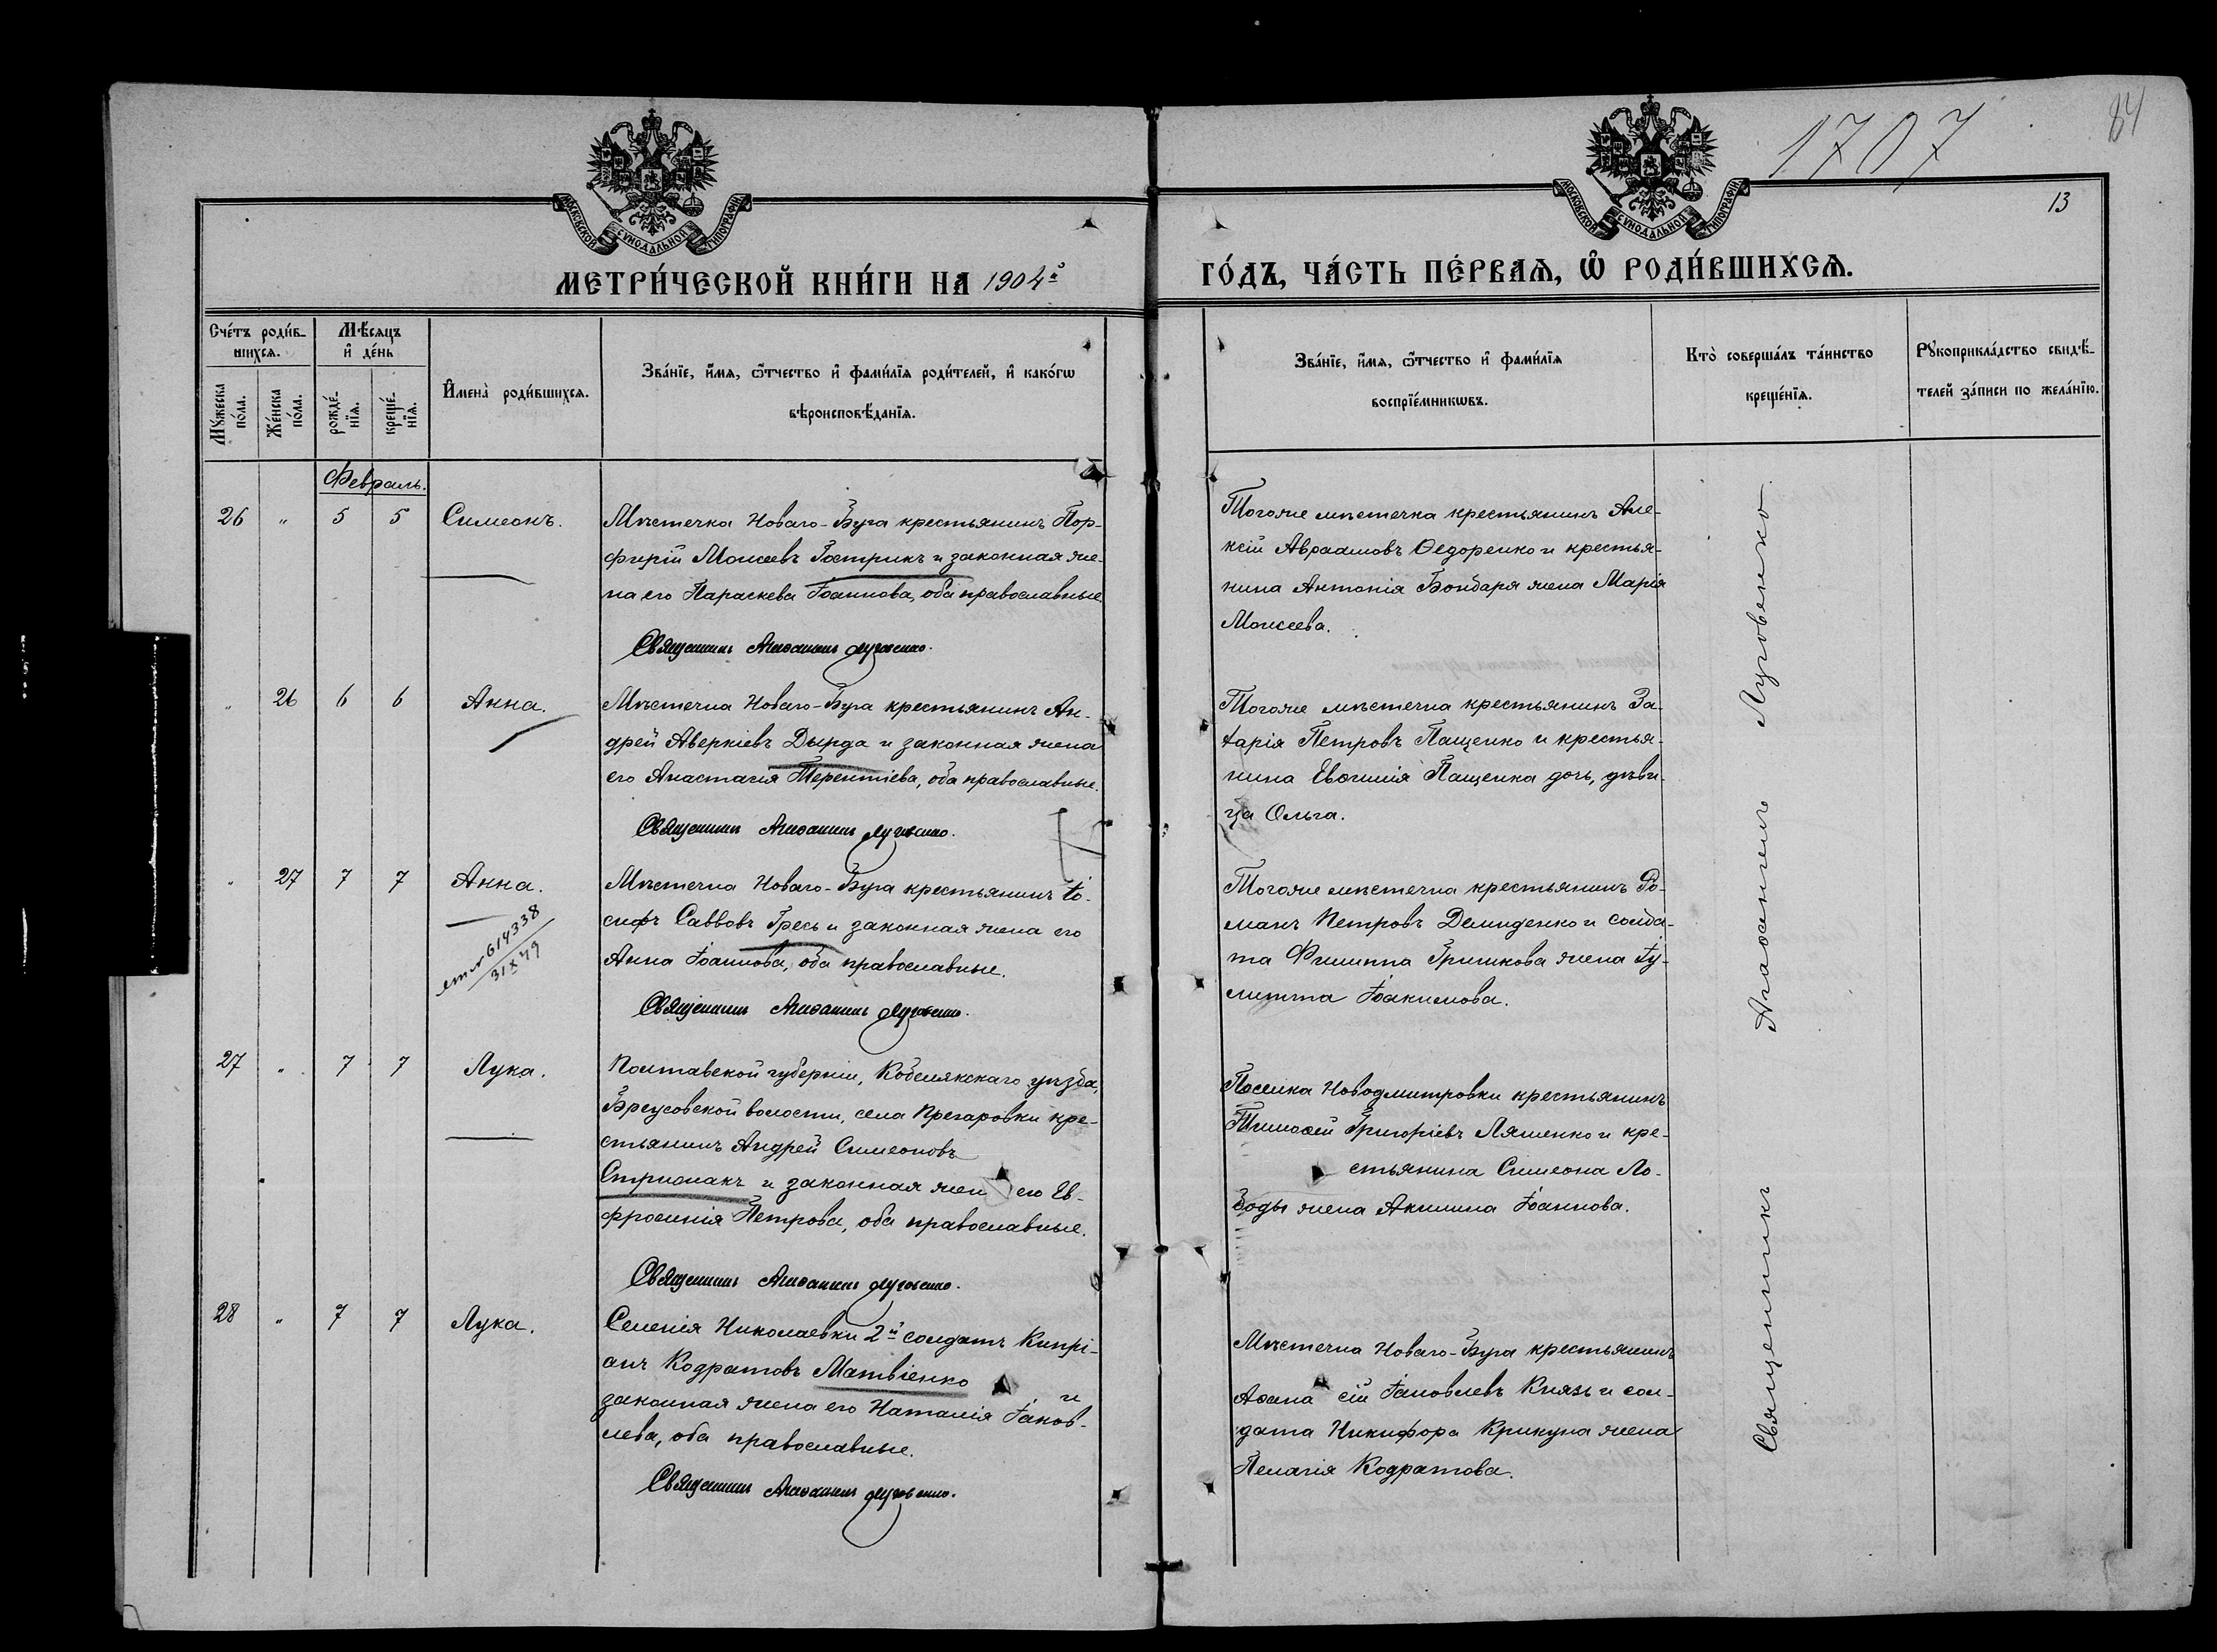 1707
84
13
МОСКОВСКОЙ СѴНОДАЛЬНОЙ ТИПОГРАФІИ
МОСКОВСКОЙ СѴНОДАЛЬНОЙ ТИПОГРАФІИ
МЕТРИ́ЧЕСКОЙ КНИ́ГИ НА 1904й
ГО́ДЪ, ЧА́СТЬ ПЕ́РВАѦ, Ѽ РОДИ́ВШИХСѦ.
Сче́тъ роди́в-
шихсѧ.
Мѣ́сѧцъ
и҆ де́нь
Мꙋ́жеска
по́ла.
Же́нска
по́ла.
рожде́-
нїѧ.
креще́-
нїѧ.
И҆мена̀ роди́вшихсѧ.
Зва́нїе, и҆́мѧ, ѻ҆́тчество и҆ фами́лїѧ роди́телей, и҆ како́гѡ
вѣроисповѣ́данїѧ.
Зва́нїе, и҆́мѧ, ѻ҆́тчество и҆ фами́лїѧ
воспрїе́мникѡвъ.
Кто̀ соверша́лъ та́инство
креще́нїѧ.
Рꙋкоприкла́дство свидѣ́-
телей за́писи по жела́нїю.
Февраль.
26 " 5 5 Симеонъ.
Мѣстечка Новаго-Буга крестьянинъ Пор-
фирій Моисеевъ Гострикъ и законная же-
на его Параскева Іоаннова, оба православные.
Священникъ Агаѳангелъ Луговенко.
Тогоже мѣстечка крестьянинъ Але-
ксій Авраамовъ Ѳедоренко и крестья-
нина Антонія Бондаря жена Марія
Моисеева.
" 26 6 6 Анна.
Мѣстечка Новаго-Буга крестьянинъ Ан-
дрей Аверкіевъ Дырда и законная жена
его Анастасія Терентіева, оба православные.
Священникъ Агаѳангелъ Луговенко.
Тогоже мѣстечка крестьянинъ За-
харія Петровъ Пащенко и крестья-
нина Евѳимія Пащенка дочь, дѣви-
ца Ольга.
" 27 7 7 Анна.
614338
31 X 49
Мѣстечка Новаго-Буга крестьянинъ Іо-
сифъ Саввовъ Гресь и законная жена его
Анна Іоаннова, оба православные.
Священникъ Агаѳангелъ Луговенко.
Тогоже мѣстечка крестьянинъ Ро-
манъ Петровъ Демиденко и солда-
та Филиппа Гришкова жена Іу-
литта Іоакимова.
27 " 7 7 Лука.
Полтавской губерніи, Кобелякскаго уѣзда,
Бреусовской волости, села Пригаровки кре-
стьянинъ Андрей Симеоновъ
и законная жен его Ев-
фросинія Петрова, оба православные.
Священникъ Агаѳангелъ Луговенко.
Поселка Новодмитровки крестьянинъ
Тимоѳей Григоріевъ Ляшенко и кре-
стьянина Симеона Ло-
боды жена Акилина Іоаннова.
28 " 7 7 Лука.
Селенія Николаевки 2й солдатъ Кипрі-
анъ Кодратовъ Матвіенко и
законная жена его Наталія Іаков-
лева, оба православные.
Священникъ Агаѳангелъ Луговенко.
Мѣстечка Новаго-Буга крестьянинъ
Аѳана сій Іаковлевъ Князь и сол-
дата Никифора Крикуна жена
Пелагія Кодратова.
Священникъ Агаѳангелъ Луговенко.